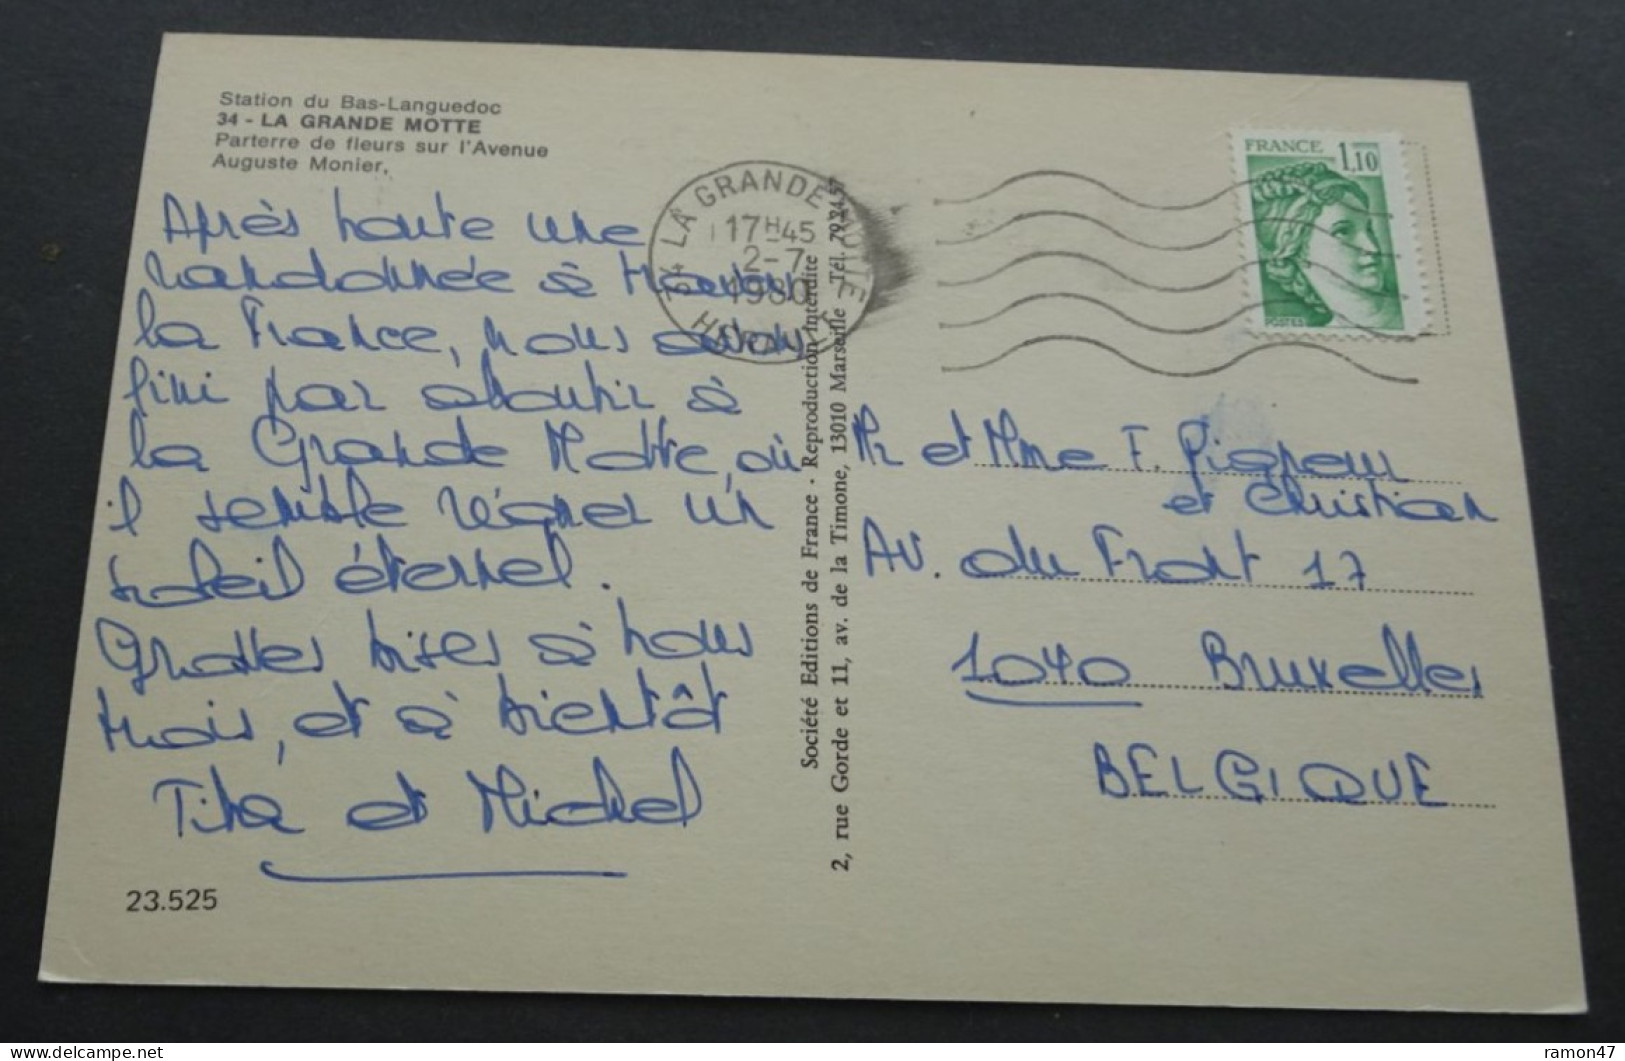 Station du Bas-Languedoc
34 - LA GRANDE MOTTE
Parterre de fleurs sur l'Avenue
Auguste Monier,
Après toute une
randonnée à travers
la France, nous avons
fini par aboutir à
la Grande Motte, où
il semble régner un
soleil éternel.
Grosses bises à vous
trois, et à bientôt
Tita et Michel
23.525
Société Editions de France - Reproduction Interdite
2, rue Gorde et 11, av. de la Timone, 13010 Marseille - Tél. 79.24.57
34 LA GRANDE MOTTE
17H45
2-7
1980
HERAULT
FRANCE 1,10
POSTES
Mr et Mme F. Pigneur
et Christian
Av. du Front 17
1040 Bruxelles
BELGIQUE
delcampe.net
ramon47